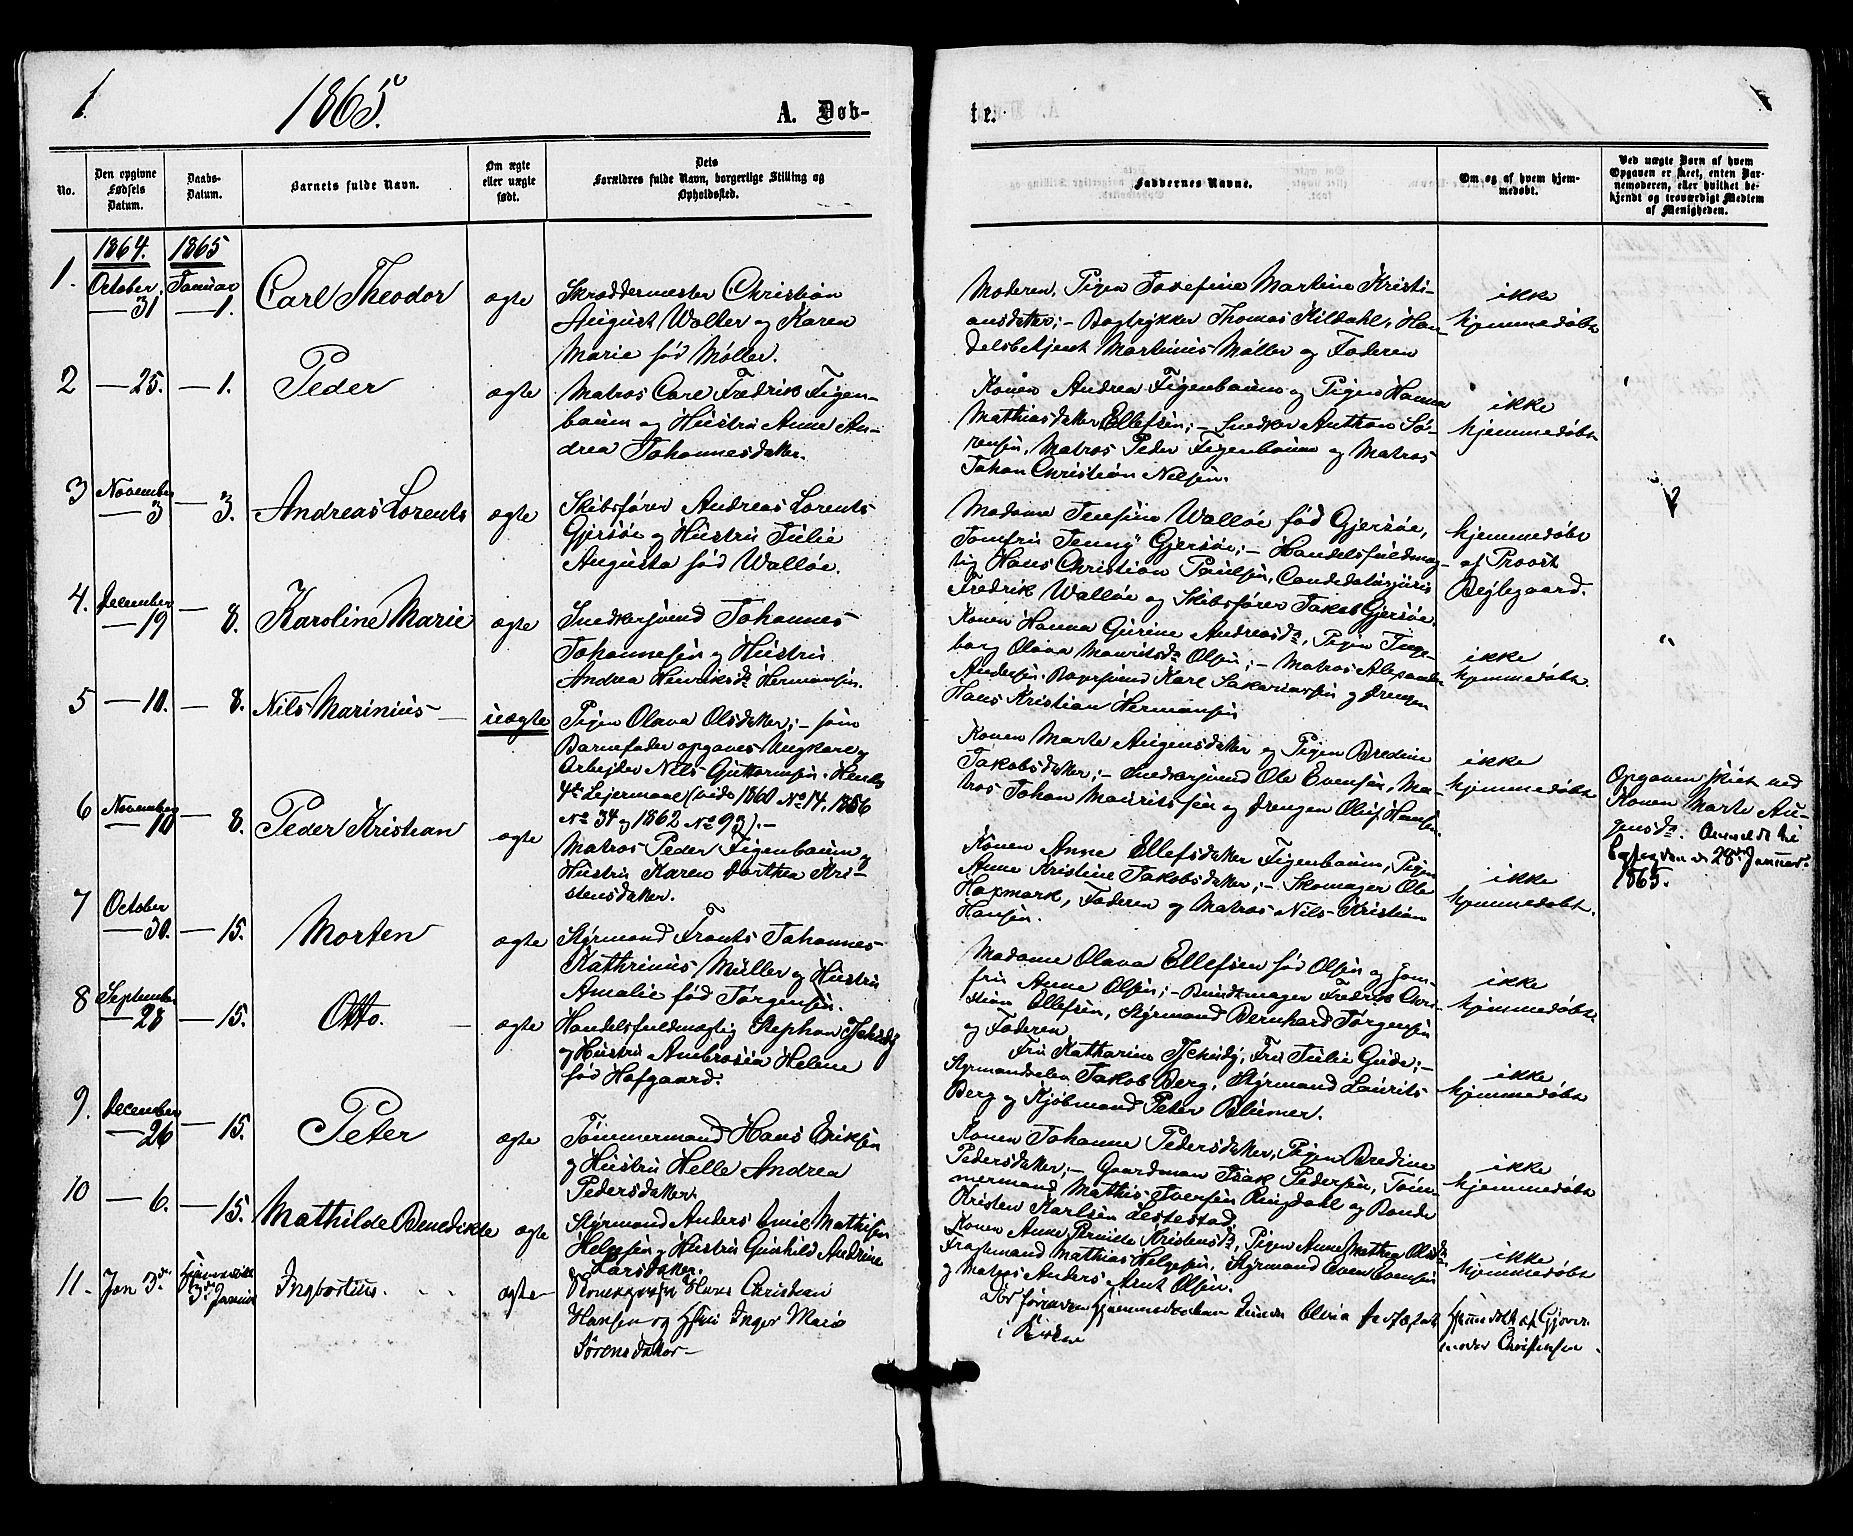 1.
1865.
A. Døb-
te.
No.
Den opgivne
Fødsels
Datum.
Daabs-
Datum.
Barnets fulde Navn.
Om ægte
eller uægte
født.
Dets
Forældres fulde Navn, borgerlige Stilling og
Opholdssted.
Faddernes Navne.
Om og af hvem hjem-
medøbt.
Ved uægte Børn af hvem
Opgaven er skeet, enten Bar-
nemoderen, eller hvilket be-
kjendt og troværdigt Medlem
af Menigheden.
1864.
1865
1.
October
31
Januar
1.
Carl Theodor
ægte
Skræddermester Christian
August Woller og Karen
Marie fød Møller.
Moderen, Pigen Josefine Martine Kristi-
ansdatter; - Bogtrykker Thomas Kildahl, Han-
delsbetjent Martinius Møller og Faderen
ikke
hjemmedøbt
2
25.
1.
Peder
ægte
Matros Carl Fredrik Figen-
baum og Hustru Anne An-
drea Johannesdatter.
Konen Andrea Figenbaum og Pigen Hanna
Mathiasdatter Ellefsen; - Snedker Anthon Sø-
rensen, Matros Peder Figenbaum og Matros
Johan Christian Nilsen.
ikke
hjemmedøbt
3
November
3
3.
Andreas Lorents
ægte
Skibsfører Andreas Lorents
Gjersøe og Hustru Julie
Augusta fød Walløe.
Madame Jensine Walløe fød Gjersøe,
Jomfru Jenny Gjersøe; - Handelsfuldmæg-
tig Hans Christian Paulsen, Candidatus juris
Fredrik Walløe og Skibsfører Jakob Gjersøe.
hjemmedøbt
af Provst
Bejlegaard.
4.
December
19
8.
Karoline Marie
ægte
Snedkersvend Johannes
Johannesen og Hustru
Andrea Henriksdr Hermansen.
Konen Hanna Gurine Andreasdr, Pigen Inge-
borg Olava Mauritsdr Olsen; - Matros Alexander
Andersen, Bagersvend Karl Sakariassen og Drengen
Hans Kristian Hermansen
ikke
hjemmedøbt.
"
5
10.
8.
Nils Marinius
uægte
Pigen Olava Olsdatter; - som
Barnefader opgives Ungkarl og
Arbejder Nils Guttormsen. Hendes
4de Lejermaal (vide 1860 No 14, 1856
No 34 og 1862 No 93). -
Konen Marte Augensdatter og Pigen Bredine
Jakobsdatter; - Snedkersvend Ole Evensen, Ma-
tros Johan Mauritssen og Drengen Oluf Hansen.
ikke
hjemmedøbt
Opgaven skeet ved
Konen Marte Au-
gensdr. Anmeldt til
den 28de Januar
1865.
6
November
10
8.
Peder Kristian
ægte
Matros Peder Figenbaum og
Hustru Karen Dorthea Kri-
stensdatter.
Konen Anne Ellefsdatter Figenbaum, Pigen
Anne Kristine Jakobsdatter; - Skomager Ole
Haxmark, Faderen og Matros Nils Kristian
Hansen.
ikke
hjemmedøbt.
7
October
30.
15.
Morten
ægte
Styrmand Frants Johannes
Kathrinus Müller og Hustru
Amalie fød Jørgensen.
Madame Olava Ellefsen fød Olsen og Jom-
fru Anne Olsen; - Bundtmager Fredrik Chri-
stian Ellefsen, Styrmand Bernhard Jørgensen
og Faderen.
ikke
hjemmedøbt.
8
September
28
15.
Otto.
ægte
Handelsfuldmægtig Stephan Tschudy
og Hustru Ambrosia Helene
fød Hofgaard.
Fru Katharine Tschudy, Fru Julie Gude; -
Styrmandselev Jakob Berg, Styrmand Laurits
Berg og Kjøbmand Peter Blumer.
ikke
hjemmedøbt
9.
December
26
15.
Peter
ægte
Tømmermand Hans Eriksen
og Hustru Helle Andrea
Pedersdatter.
Konen Johanne Pedersdatter, Pigen Bredine
Pedersdatter; - Gaardman Isak Pedersen, Tøm-
mermand Mathis Iversen Ringdahl og Bonde
Kristen Karlsen Lestestad.
ikke
hjemmedøbt
10
6.
15.
Mathilde Benedikte
ægte
Styrmand Anders Emil Mathisen
Helgesen og Hustru Gunhild Andrine
Larsdatter.
Konen Anne Pernille Kristensdr, Pigen Anne Mathea Olsdr
Fragtemand Mathias Helgesen, Styrmand Even Evensen
og Matros Anders Arnt Olsen.
ikke
hjemmedøbt
11.
Jan 3de
Hjemmedøbt
3de Januar
Ingbortius.
ægte
Hans Christian
Hansen og Hstru Inger Marie
Sørensdatter -
i Kirken
Hjemmedøbt af Gjorde-
moder Christensen.